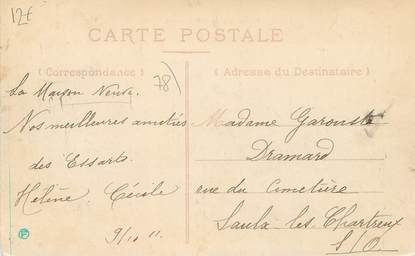 12€
CARTE POSTALE
(Correspondance)
78)
(Adresse du Destinataire)
La Maison Neuve.
Nos meilleures amitiés
des Essarts.
Hélène Cécile
9/10 11.
Madame Garouste
Dramard
rue du Cimetière
Saulx les Chartreux
S/O.